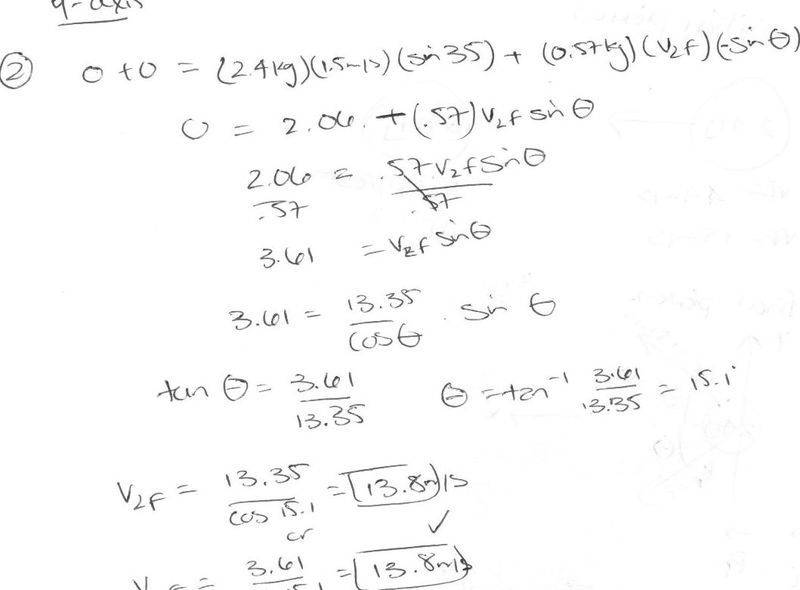 y-axis
② 0 + 0 = (2.4kg)(1.5m/s)(sin 35) + (0.57kg)(V2f)(-sin θ)
0 = 2.06 + (.57)V2f sin θ
2.06 / .57 = .57 V2f sin θ / .57
3.61 = V2f sin θ
3.61 = 13.35 / cos θ · sin θ
tan θ = 3.61 / 13.35 θ = tan⁻¹ 3.61 / 13.35 = 15.1°
V2f = 13.35 / cos 15.1 = 13.8m/s
or ✓
3.61 = 13.8m/s